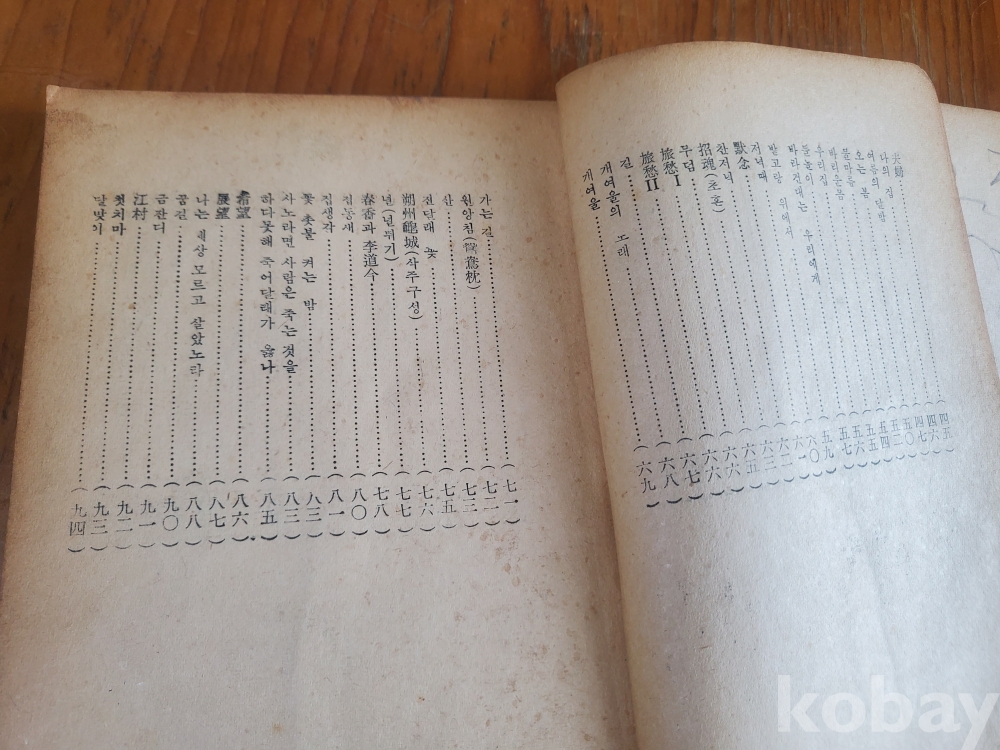 夫婦
나의 집
여름의 달밤
오는 봄
물마름
바리운몸
우리집
들놀이
바라건대는 우리에게
밭고랑 위에서
저녁때
默念
찬저녁
招魂(초혼)
무덤
旅愁 I
旅愁 II
길
개여울의 노래 (六八)
개여울 (六九)
가는 길 (七一)
원앙침(鴛鴦枕) (七二)
산 (七三)
진달래 꽃 (七五)
朔州龜城(삭주구성) (七六)
널(널뛰기) (七七)
春香과 李道令 (七八)
접동새 (八〇)
집생각 (八一)
꽃 촛불 켜는 밤 (八三)
사노라면 사람은 죽는 것을 (八三)
하다못해 죽어달래가 옳나 (八五)
希望 (八六)
展望 (八七)
나는 세상 모르고 살았노라 (八八)
꿈길 (九〇)
금잔디 (九一)
江村 (九二)
첫치마 (九三)
달맞이 (九四)
kobay